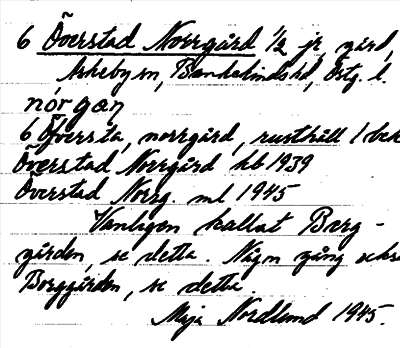 6 Överstad Norrgård 1/2 jr, gård,
Askeby sn, Bankekinds hd, Östg. l.
nórgaŋ
6 Öfversta, norrgård, rusthåll 1 bek
Överstad Norrgård kb 1939
Överstad Norrg. ml 1945
Vanligen kallat Berg-
gården, se detta. Någn gång också
Borggården, se detta.
Maja Nordlund 1945.